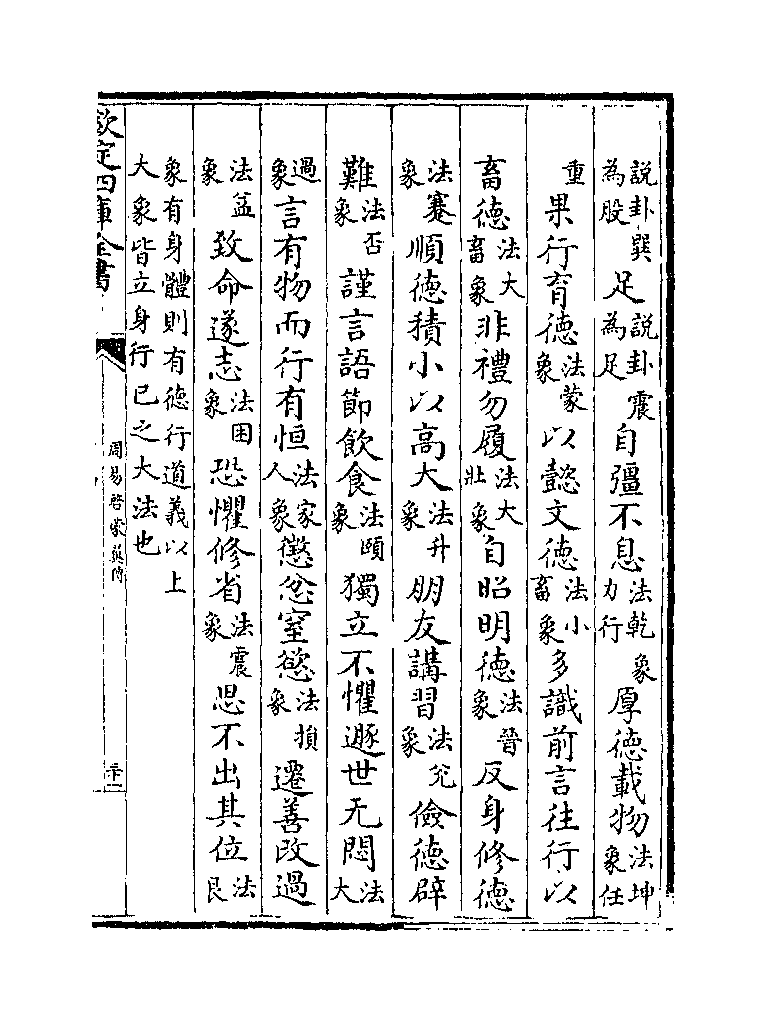 説卦巽為股足説卦震為足自彊不息法乾象力行厚徳載物法坤象任
重果行育徳法蒙象以懿文徳法小畜象多識前言往行以
畜徳法大畜象非禮勿履法大壯象自昭明徳法晉象反身修徳
法蹇象順徳積小以高大法升象朋友講習法兌象儉徳辟
難法否象謹言語節飲食法頤象獨立不懼遯世无悶法大
過象言有物而行有恒法家人象懲忿窒慾法損象遷善改過
法益象致命遂志法困象恐懼修省法震象思不出其位法艮
象有身體則有徳行道義以上大象皆立身行已之大法也
欽定四庫全書
周易啓蒙翼傳